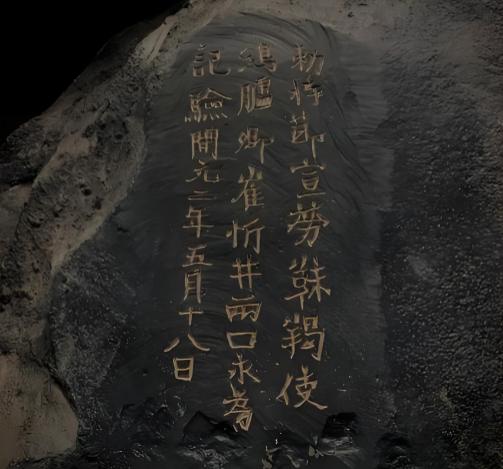 勅持莭宣勞靺羯使
鴻臚卿崔忻井兩口永為
記驗開元二年五月十八日